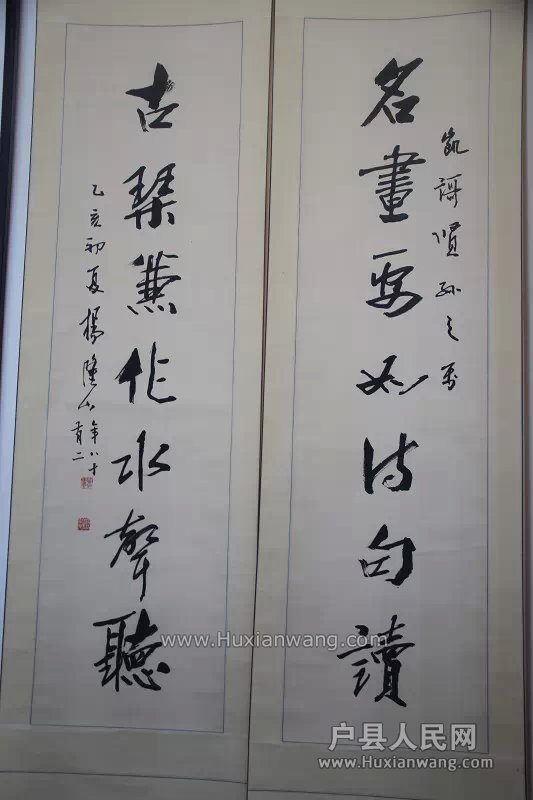 凱謌賢孫之
名畫要如詩句讀
古琴兼作水聲聽
乙亥初夏楊隆山年八十
有二
www.Huxianwang.com
户县人民网
www.Huxianwang.com